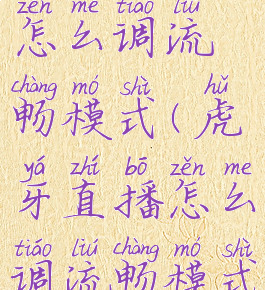 zěn me tiáo liú
怎么调流
chàng mó shì hǔ
畅模式(虎
yá zhí bō zěn me
牙直播怎么
tiáo liú chàng mó shì
调流畅模式